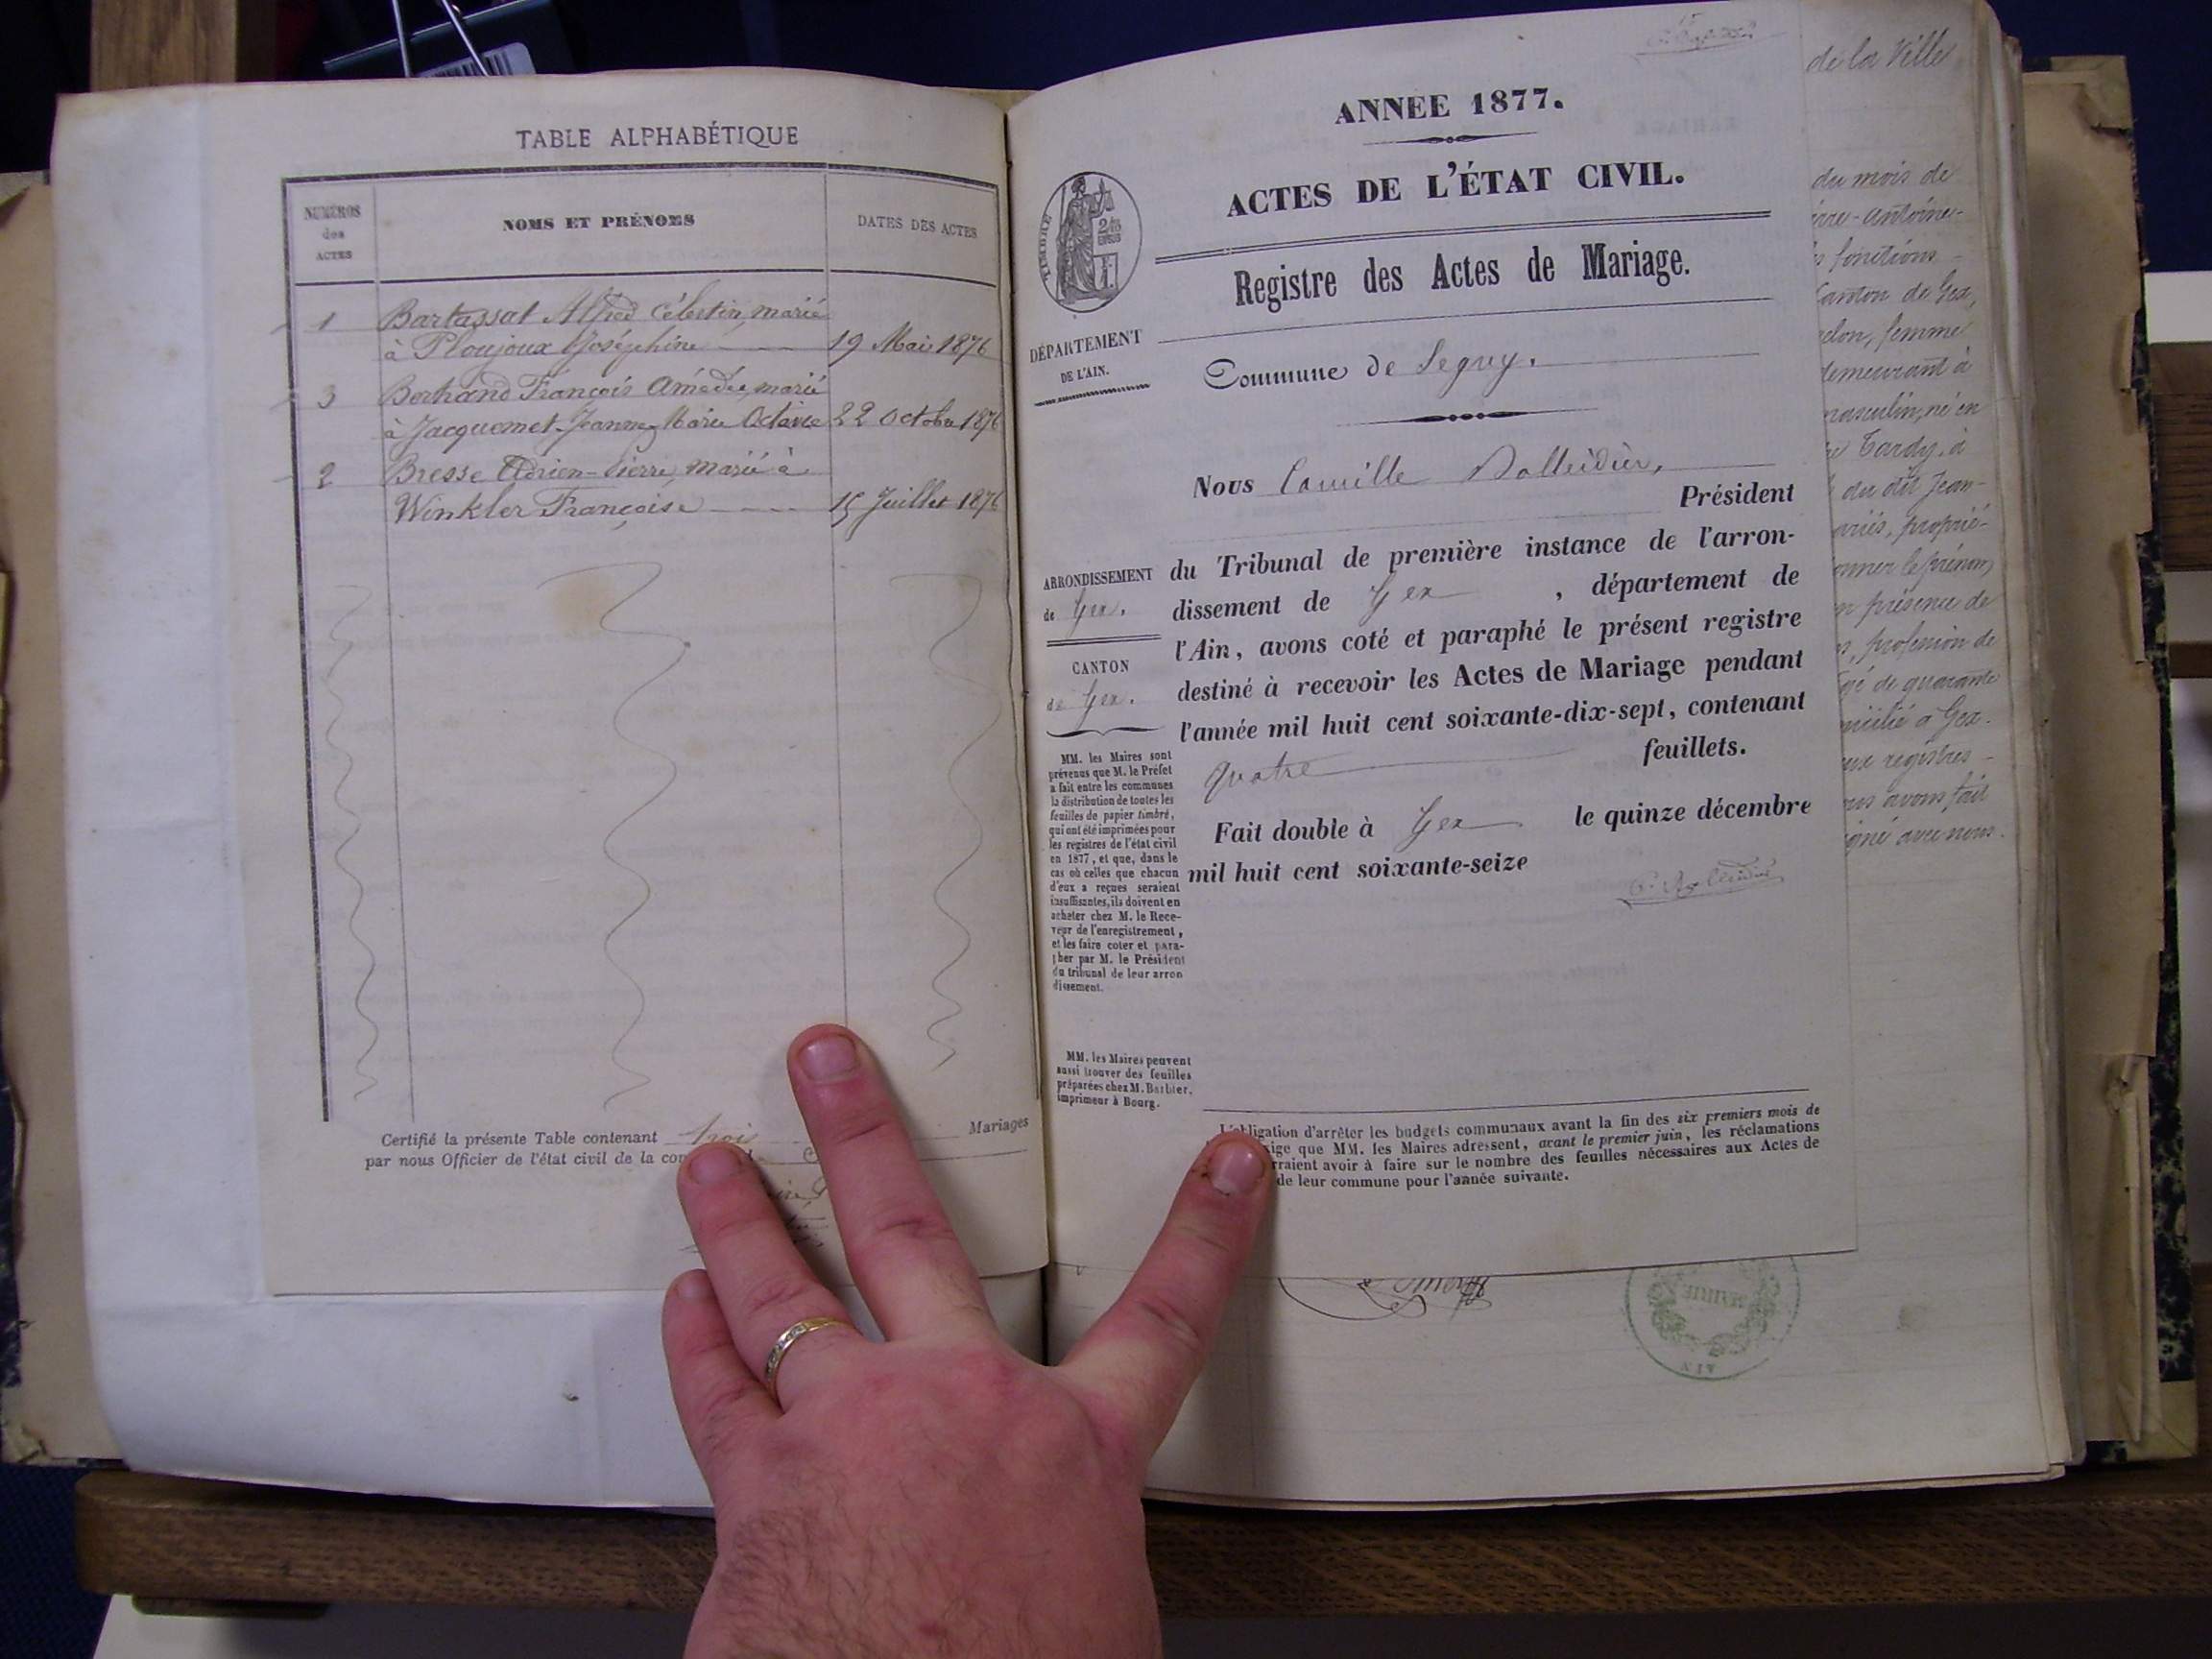 TABLE ALPHABÉTIQUE
NUMÉROS
des
ACTES
NOMS ET PRÉNOMS
DATES DES ACTES
1 Bartassat Alfred Célestin, marié
à Ploujoux Joséphine 19 Mai 1876
3 Berthand François Amédée, marié
à Jacquemet Jeanne Marie Octavie 22 Octobre 1876
2 Bresse Adrien-Pierre, marié à
Winkler Françoise 15 Juillet 1876
Certifié la présente Table contenant trois Mariages
par nous Officier de l'état civil de la
ANNÉE 1877.
ACTES DE L'ÉTAT CIVIL.
Registre des Actes de Mariage.
TIMBRE
DÉPARTEMENT
DE L'AIN.
Commune de Segny.
Nous Camille
Président
du Tribunal de première instance de l'arron-
dissement de Gex, département de
l'Ain, avons coté et paraphé le présent registre
destiné à recevoir les Actes de Mariage pendant
l'année mil huit cent soixante-dix-sept, contenant
quatre feuillets.
Fait double à Gex le quinze décembre
mil huit cent soixante-seize
ARRONDISSEMENT
de Gex.
CANTON
de Gex.
MM. les Maires sont
prévenus que M. le Préfet
a fait entre les communes
la distribution de toutes les
feuilles de papier timbré,
qui ont été imprimées pour
les registres de l'état civil
en 1877, et que, dans le
cas où celles que chacun
d'eux a reçues seraient
insuffisantes, ils doivent en
acheter chez M. le Rece-
veur de l'enregistrement,
et les faire coter et para-
pher par M. le Président
du tribunal de leur arron
dissement.
MM. les Maires peuvent
aussi trouver des feuilles
préparées chez M. Barbier,
imprimeur à Bourg.
L'obligation d'arrêter les budgets communaux avant la fin des six premiers mois de
que MM. les Maires adressent, avant le premier juin, les réclamations
avoir à faire sur le nombre des feuilles nécessaires aux Actes de
de leur commune pour l'année suivante.
de la Ville
du mois de
antoine-
fonctions
Canton de Gex,
femme
demeurant à
masculin, né en
Tardy, à
du dit Jean-
proprié-
le prénom
présence de
profession de
de quarante
à Gex.
registres
avons fait
avec nous.
MAIRIE
AIN